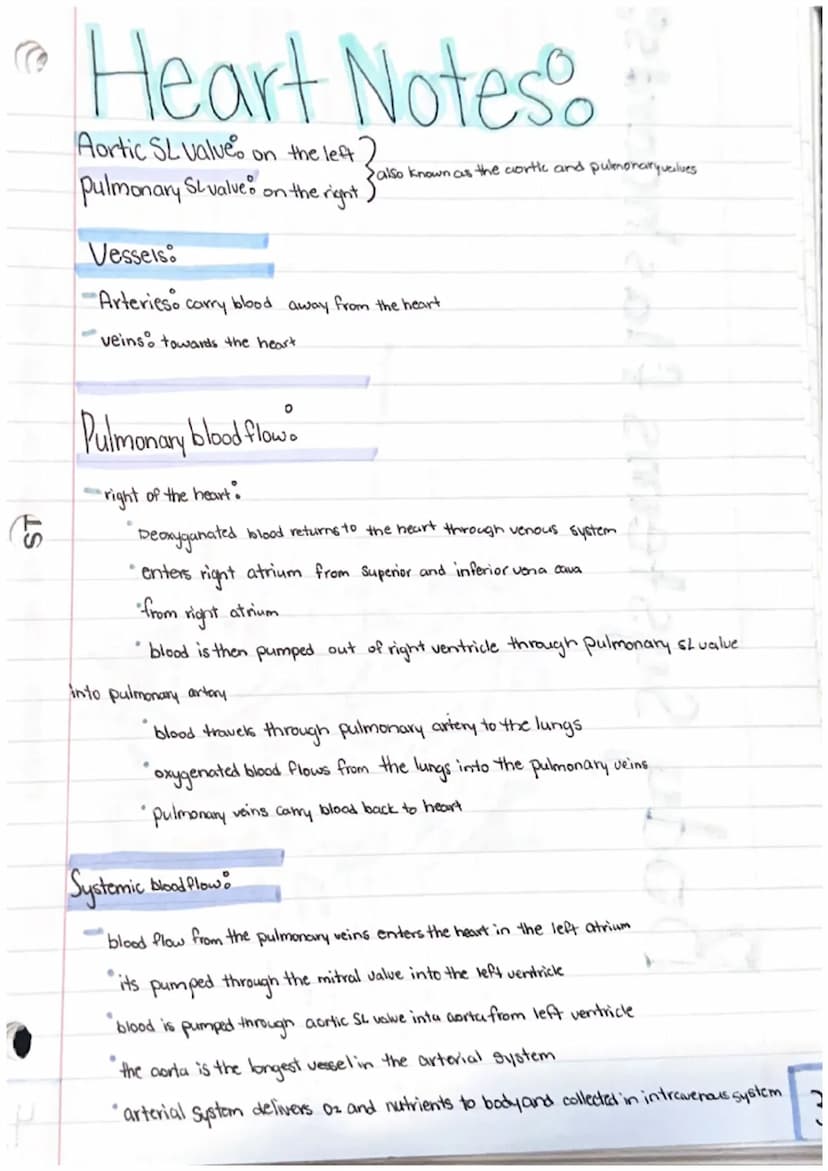 Heart Notes:
Aortic SL valve: on the left
Pulmonary SL valve: on the right
also known as the aortic and pulmonary valves
Vessels:
- Arteries: carry blood away from the heart
- veins: towards the heart
Pulmonary blood flow:
- right of the heart:
• Deoxyganated blood returns to the heart through venous system
• enters right atrium from superior and inferior vena cava
• from right atrium
• blood is then pumped out of right ventricle through pulmonary SL valve
into pulmonary artery
• blood travels through pulmonary artery to the lungs
• oxygenated blood flows from the lungs into the pulmonary veins
• pulmonary veins carry blood back to heart
Systemic blood flow:
- blood flow from the pulmonary veins enters the heart in the left atrium
• its pumped through the mitral valve into the left ventricle
• blood is pumped through aortic SL valve into aorta from left ventricle
• the aorta is the longest vessel in the arterial system
• arterial system delivers O2 and nutrients to body and collected in intravenous system
3